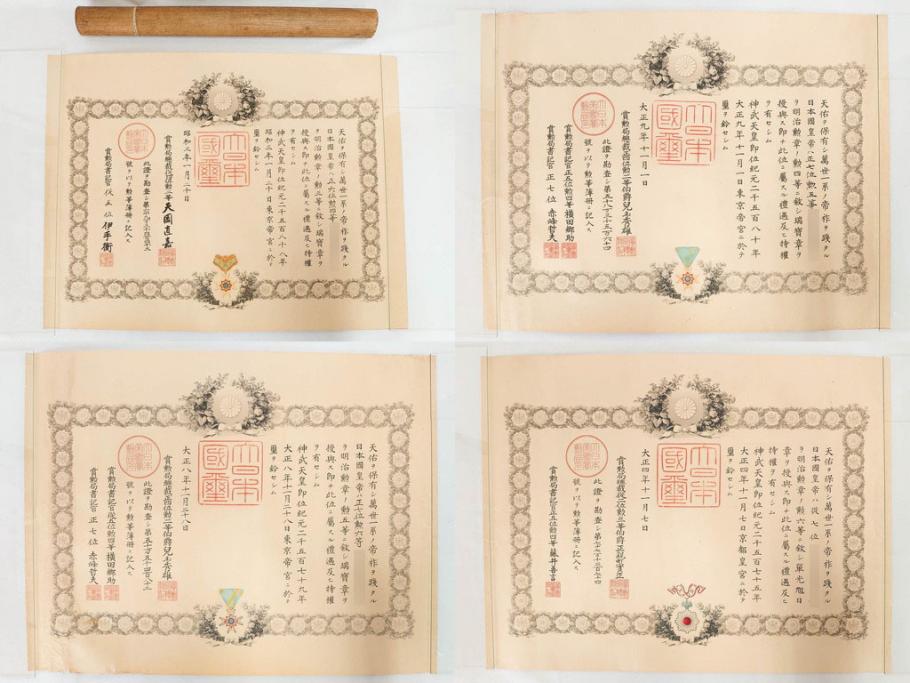 天佑ヲ保有シ萬世一系ノ帝祚ヲ踐タル
日本國皇帝ハ正六位勲四等
ヲ明治勲章ノ勲三等ニ敘シ瑞寶章ヲ
授與ス即チ此位ニ屬スル禮遇及ヒ特權
ヲ有セシム
神武天皇即位紀元二千五百八十八年
昭和三年一月二十日東京帝宮ニ於テ
璽ヲ鈐セシム
大日本國璽
昭和三年一月二十日
賞勲局總裁從四位勲二等天岡直嘉
此證ヲ勘査シ第
號ヲ以テ勲等簿册ニ記入ス
賞勲局書記官 從五位 伊手衡
天佑ヲ保有シ萬世一系ノ帝祚ヲ踐タル
日本國皇帝ハ正七位勲五等
ヲ明治勲章ノ勲四等ニ敘シ瑞寶章ヲ
授與ス即チ此位ニ屬スル禮遇及ヒ特權
ヲ有セシム
神武天皇即位紀元二千五百八十年
大正九年十一月一日東京帝宮ニ於テ
璽ヲ鈐セシム
大日本國璽
大正九年十一月一日
賞勲局總裁正四位勲二等伯爵兒玉秀雄
此證ヲ勘査シ第
號ヲ以テ勲等簿册ニ記入ス
賞勲局書記官正五位勲四等横田郷助
賞勲局書記官 正七位 赤峰哲夫
天佑ヲ保有シ萬世一系ノ帝祚ヲ踐タル
日本國皇帝ハ正七位勲六等
ヲ明治勲章ノ勲五等ニ敘シ瑞寶章ヲ
授與ス即チ此位ニ屬スル禮遇及ヒ特權
ヲ有セシム
神武天皇即位紀元二千五百七十九年
大正八年十二月二十八日東京帝宮ニ於テ
璽ヲ鈐セシム
大日本國璽
大正八年十二月二十八日
賞勲局總裁正四位勲二等伯爵兒玉秀雄
此證ヲ勘査シ第
號ヲ以テ勲等簿册ニ記入ス
賞勲局書記官從五位勲四等横田郷助
賞勲局書記官 正七位 赤峰哲夫
天佑ヲ保有シ萬世一系ノ帝祚ヲ踐タル
日本國皇帝ハ從七位
ヲ明治勲章ノ勲六等ニ敘シ單光旭日
章ヲ授與ス即チ此位ニ屬スル禮遇及ヒ
特權ヲ有セシム
神武天皇即位紀元二千五百七十五年
大正四年十一月七日京都皇宮ニ於テ
璽ヲ鈐セシム
大日本國璽
大正四年十一月七日
賞勲局總裁從二位勲三等伯爵正親町實正
此證ヲ勘査シ第
號ヲ以テ勲等簿册ニ記入ス
賞勲局書記官從五位勲四等藤井善言